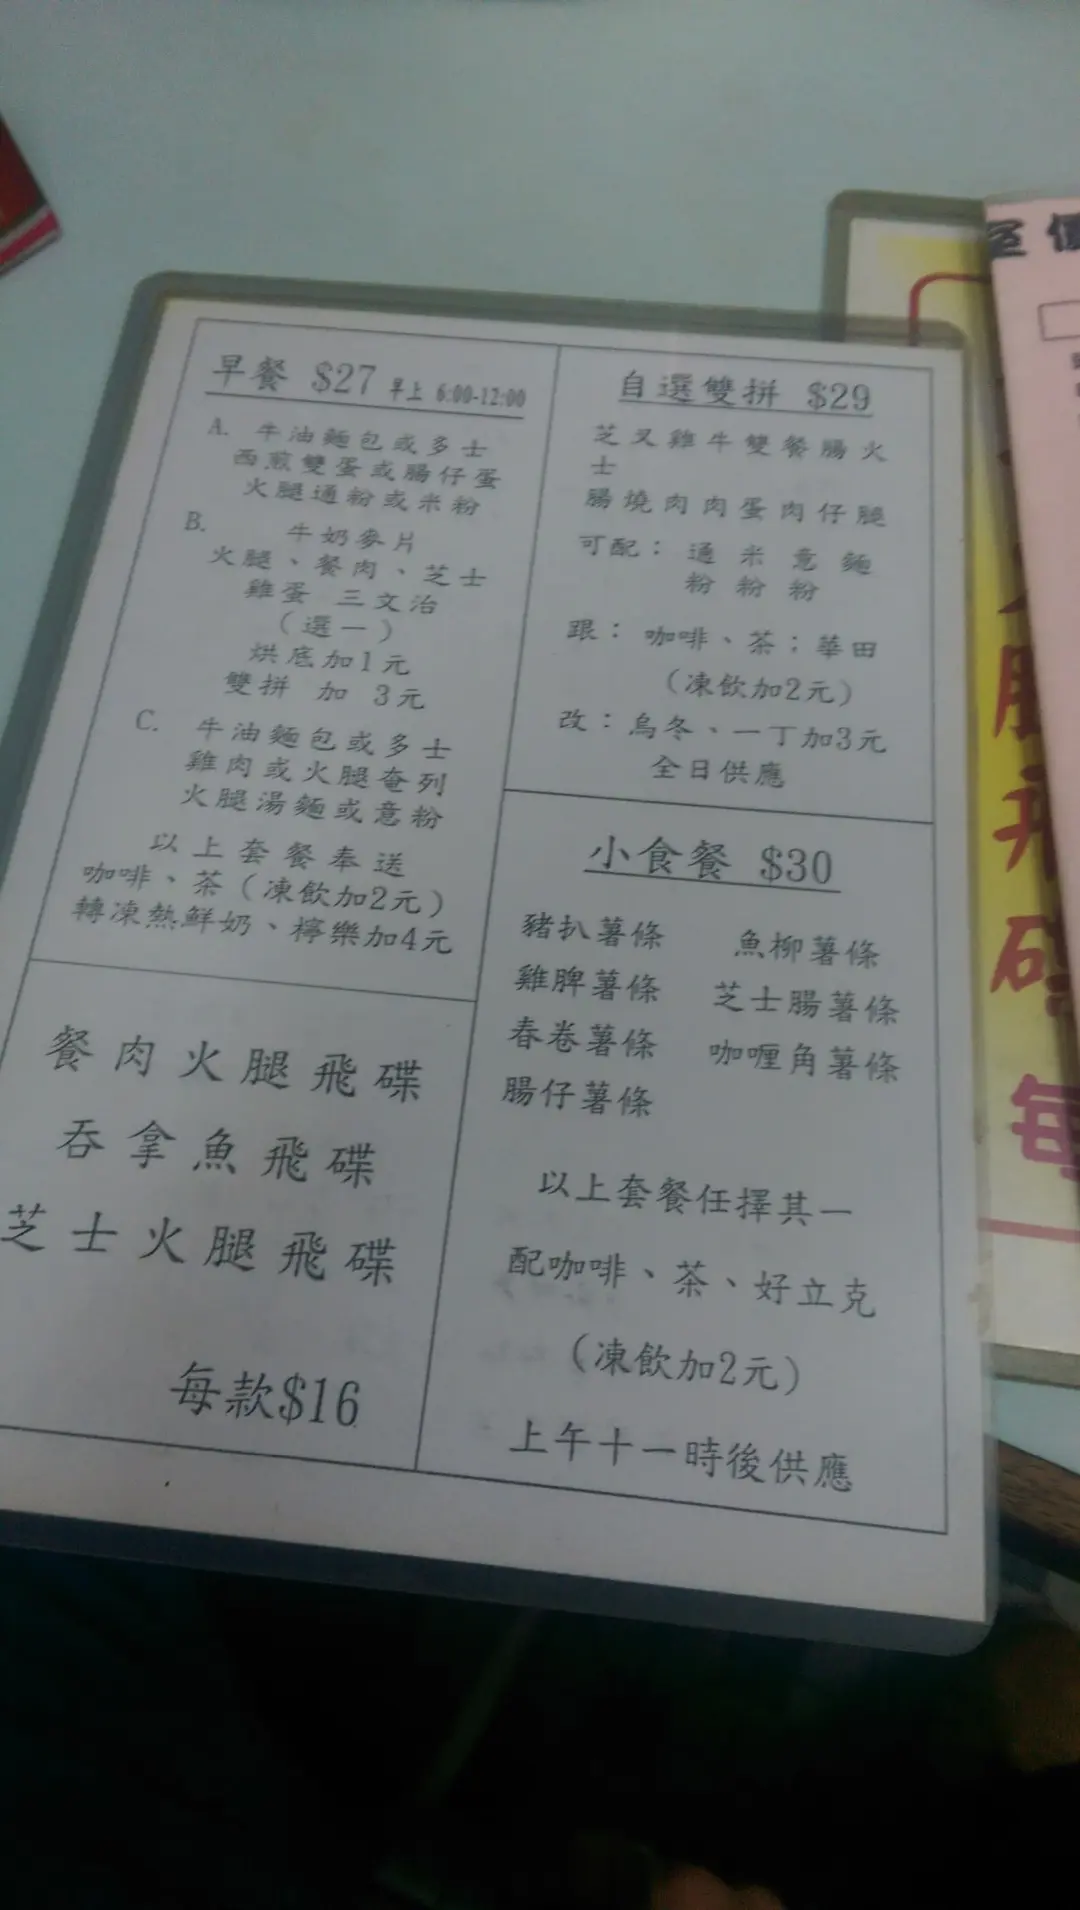 早餐 $27 早上 6:00-12:00
A. 牛油麵包或多士
西煎雙蛋或腸仔蛋
火腿通粉或米粉
B. 牛奶麥片
火腿、餐肉、芝士
雞蛋 三文治
(選一)
烘底加1元
雙拼 加 3元
C. 牛油麵包或多士
雞肉或火腿奄列
火腿湯麵或意粉
以上套餐奉送
咖啡、茶(凍飲加2元)
轉凍熱鮮奶、檸樂加4元
餐肉火腿飛碟
吞拿魚飛碟
芝士火腿飛碟
每款$16
自選雙拼 $29
芝叉雞牛雙餐腸火
士
腸燒肉肉蛋肉仔腿
可配: 通 米 意 麵
粉 粉 粉
跟: 咖啡、茶;華田
(凍飲加2元)
改:烏冬、一丁加3元
全日供應
小食餐 $30
豬扒薯條 魚柳薯條
雞脾薯條 芝士腸薯條
春卷薯條 咖喱角薯條
腸仔薯條
以上套餐任擇其一
配咖啡、茶、好立克
(凍飲加2元)
上午十一時後供應
腿
飛
碟
每